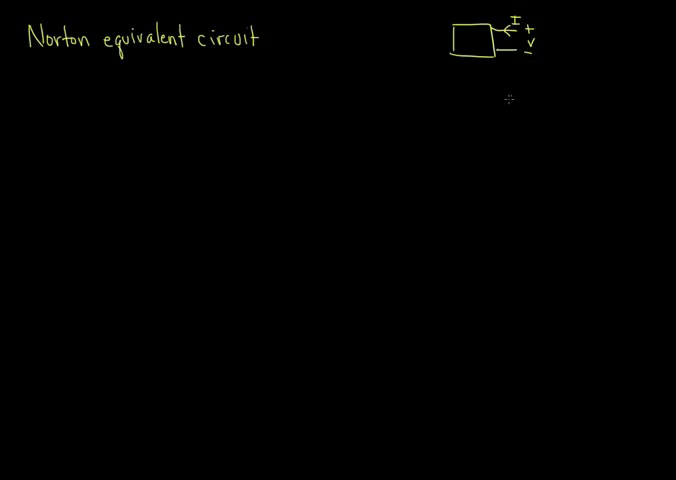 Norton equivalent circuit
I
+
V
-